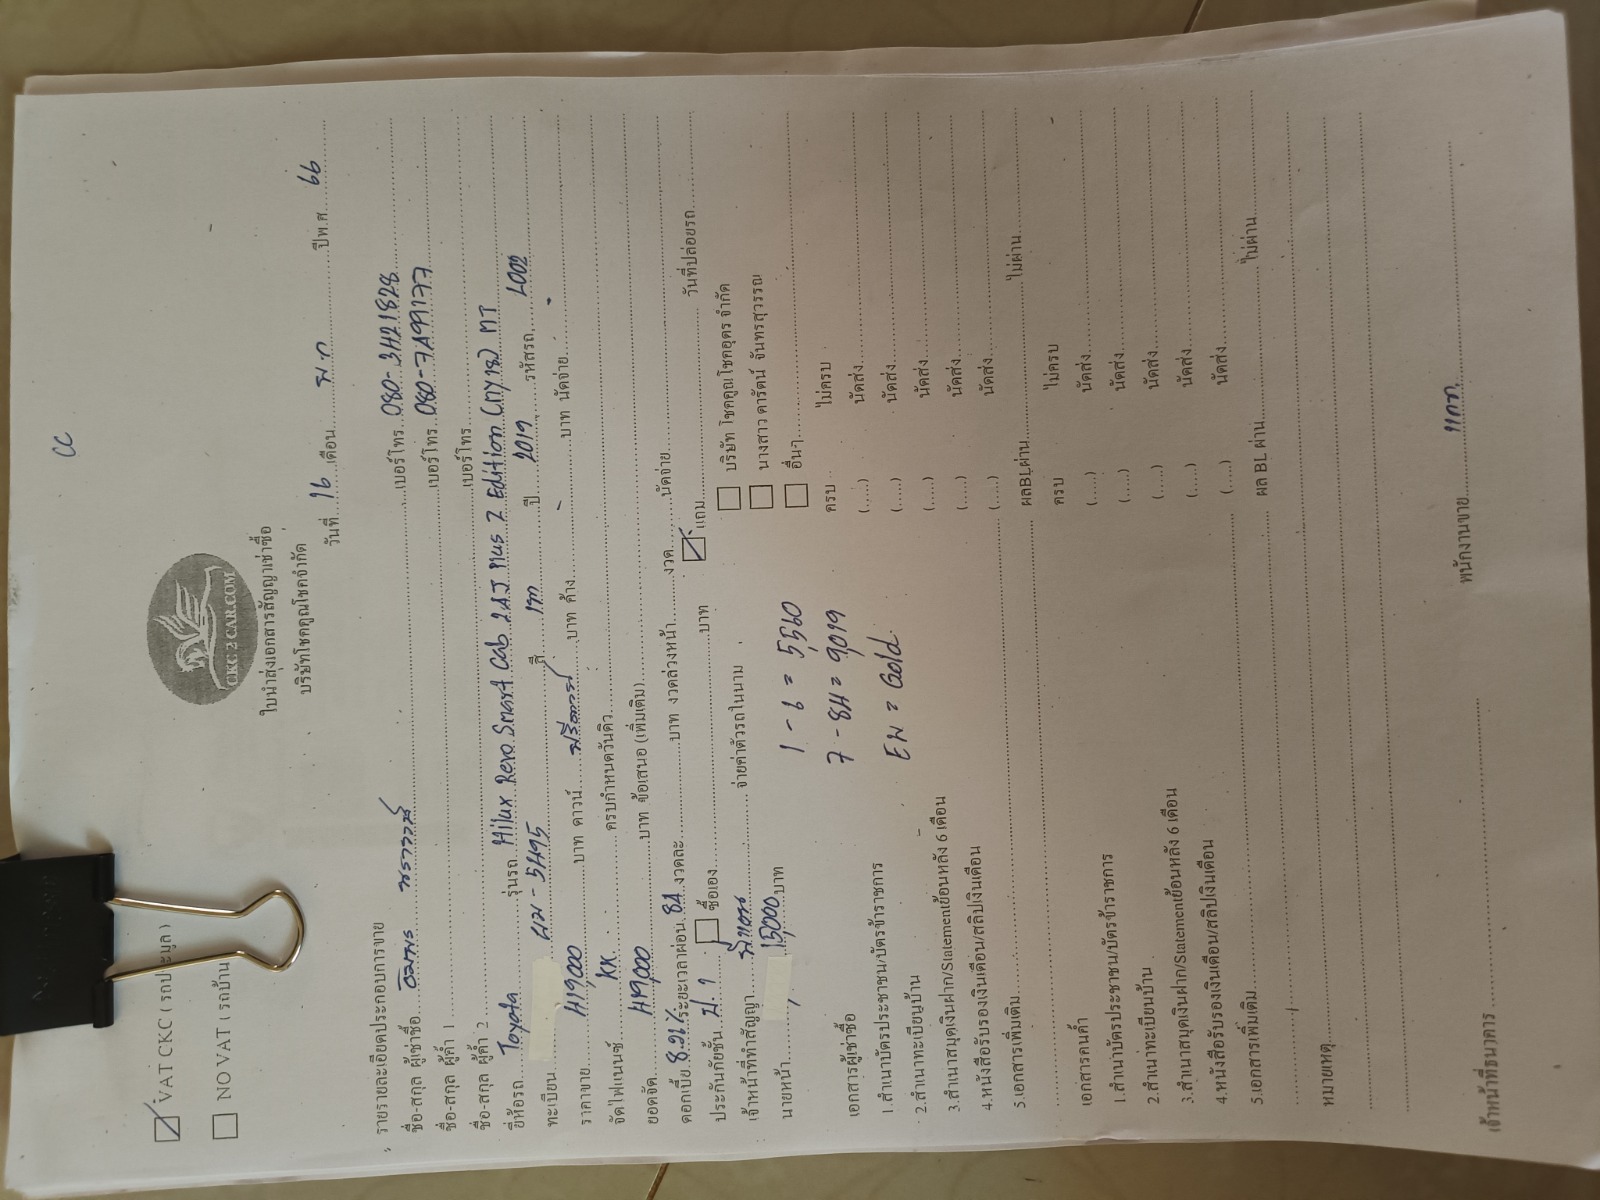 CC
CKC 2 CAR.COM
ใบนำส่งเอกสารสัญญาเช่าซื้อ
บริษัทโชคคูณโชคจำกัด
VAT CKC ( รถประมูล )
NO VAT ( รถบ้าน
วันที่ 16 เดือน ม.ค ปีพ.ศ. 66
รายรายละเอียดประกอบการขาย
ชื่อ-สกุล ผู้เช่าซื้อ เบอร์โทร. 080-3421828
ชื่อ-สกุล ผู้ค้ำ 1 เบอร์โทร.
ชื่อ-สกุล ผู้ค้ำ 2 เบอร์โทร.
ยี่ห้อรถ Toyota รุ่นรถ. Hilux Revo Smart Cab 2.4J Plus Z Edition MT
ทะเบียน สี เทา ปี 2019 รหัสรถ. L002
ราคาขาย 419,000 บาท ดาวน์ ฟรีดาวน์ บาท ค้าง - บาท นัดจ่าย -
จัดไฟแนนซ์ KK ครบกำหนดวันคิว
ยอดจัด 419,000 บาท ข้อเสนอ (เพิ่มเติม)
ดอกเบี้ย ระยะเวลาผ่อน 84 งวดละ บาท งวดล่วงหน้า งวด นัดจ่าย
ประกันภัยชั้น ป.1 ซื้อเอง บาท แถม วันที่ปล่อยรถ
เจ้าหน้าที่ทำสัญญา จ่ายค่าตัวรถในนาม บริษัท โชคคูณโชคอุดร จำกัด
นางสาว ดารัตน์ จันทรสุวรรณ
นายหน้า 15,000 บาท อื่นๆ
1 - 6 = 5,560
7 - 84 = 9,019
EW = Gold
เอกสารผู้เช่าซื้อ ครบ ไม่ครบ
1.สำเนาบัตรประชาชน/บัตรข้าราชการ (.....) นัดส่ง
2.สำเนาทะเบียนบ้าน (.....) นัดส่ง
3.สำเนาสมุดเงินฝาก/Statementย้อนหลัง 6 เดือน (.....) นัดส่ง
4.หนังสือรับรองเงินเดือน/สลิปเงินเดือน (.....) นัดส่ง
5.เอกสารเพิ่มเติม (.....) นัดส่ง
ผลBLผ่าน ไม่ผ่าน
เอกสารคนค้ำ ครบ ไม่ครบ
1.สำเนาบัตรประชาชน/บัตรข้าราชการ (.....) นัดส่ง
2.สำเนาทะเบียนบ้าน (.....) นัดส่ง
3.สำเนาสมุดเงินฝาก/Statementย้อนหลัง 6 เดือน (.....) นัดส่ง
4.หนังสือรับรองเงินเดือน/สลิปเงินเดือน (.....) นัดส่ง
5.เอกสารเพิ่มเติม (.....) นัดส่ง
ผล BL ผ่าน ไม่ผ่าน
หมายเหตุ
เจ้าหน้าที่ธนาคาร พนักงานขาย